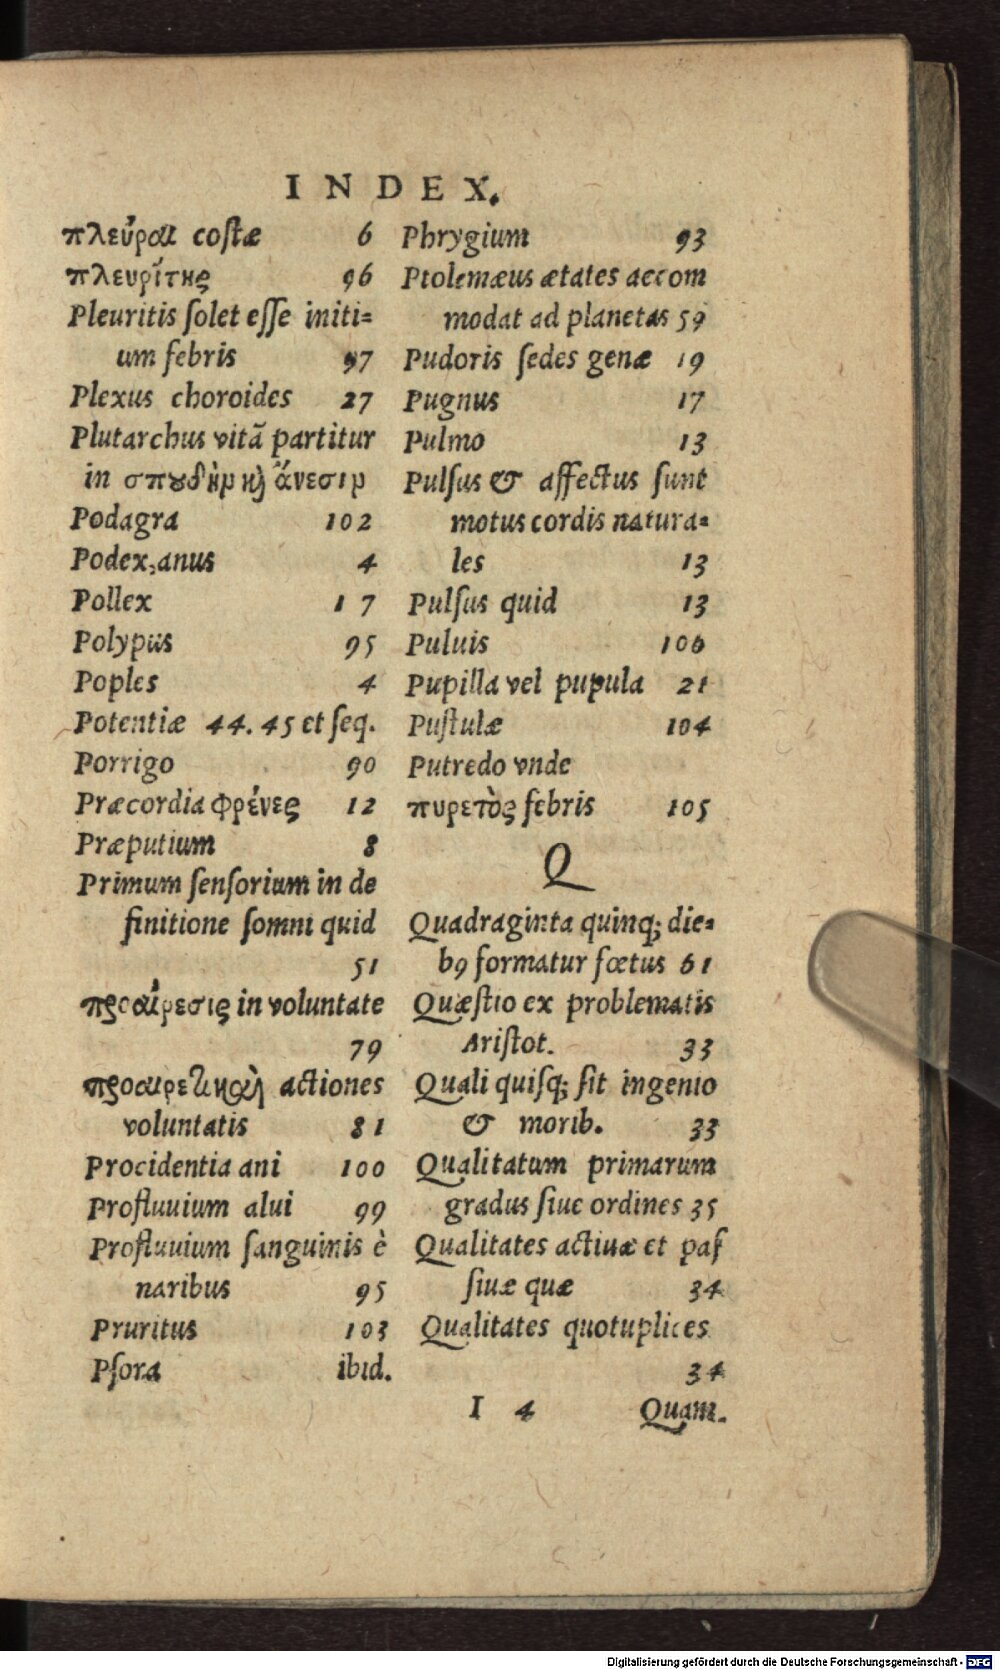 INDEX.
πλεῦραι coſtæ 6
πλευρίτης 96
Pleuritis ſolet eſſe initi=
um febris 97
Plexus choroides 27
Plutarchus vitã partitur
in σπουδὴν καὶ ἄνεσιν
Podagra 102
Podex,anus 4
Pollex 17
Polypus 95
Poples 4
Potentiæ 44.45 et ſeq.
Porrigo 90
Præcordia φρένες 12
Præputium 8
Primum ſenſorium in de
finitione ſomni quid
51
προαίρεσις in voluntate
79
προαιρετικαὶ actiones
voluntatis 81
Procidentia ani 100
Profluuium alui 99
Profluuium ſanguinis è
naribus 95
Pruritus 103
Pſora ibid.
Phrygium 93
Ptolemæus ætates accom
modat ad planetas 59
Pudoris ſedes genæ 19
Pugnus 17
Pulmo 13
Pulſus & affectus ſunt
motus cordis natura=
les 13
Pulſus quid 13
Puluis 106
Pupilla vel pupula 21
Puſtulæ 104
Putredo vnde
πυρετὸς febris 105
Q
Quadraginta quinq; die=
bꝰ formatur fœtus 61
Quæſtio ex problematis
Ariſtot. 33
Quali quiſq; ſit ingenio
& morib. 33
Qualitatum primarum
gradus ſiue ordines 35
Qualitates actiuæ et paſ
ſiuæ quæ 34
Qualitates quotuplices
34
I 4 Quam.
Digitalisierung gefördert durch die Deutsche Forschungsgemeinschaft - DFG